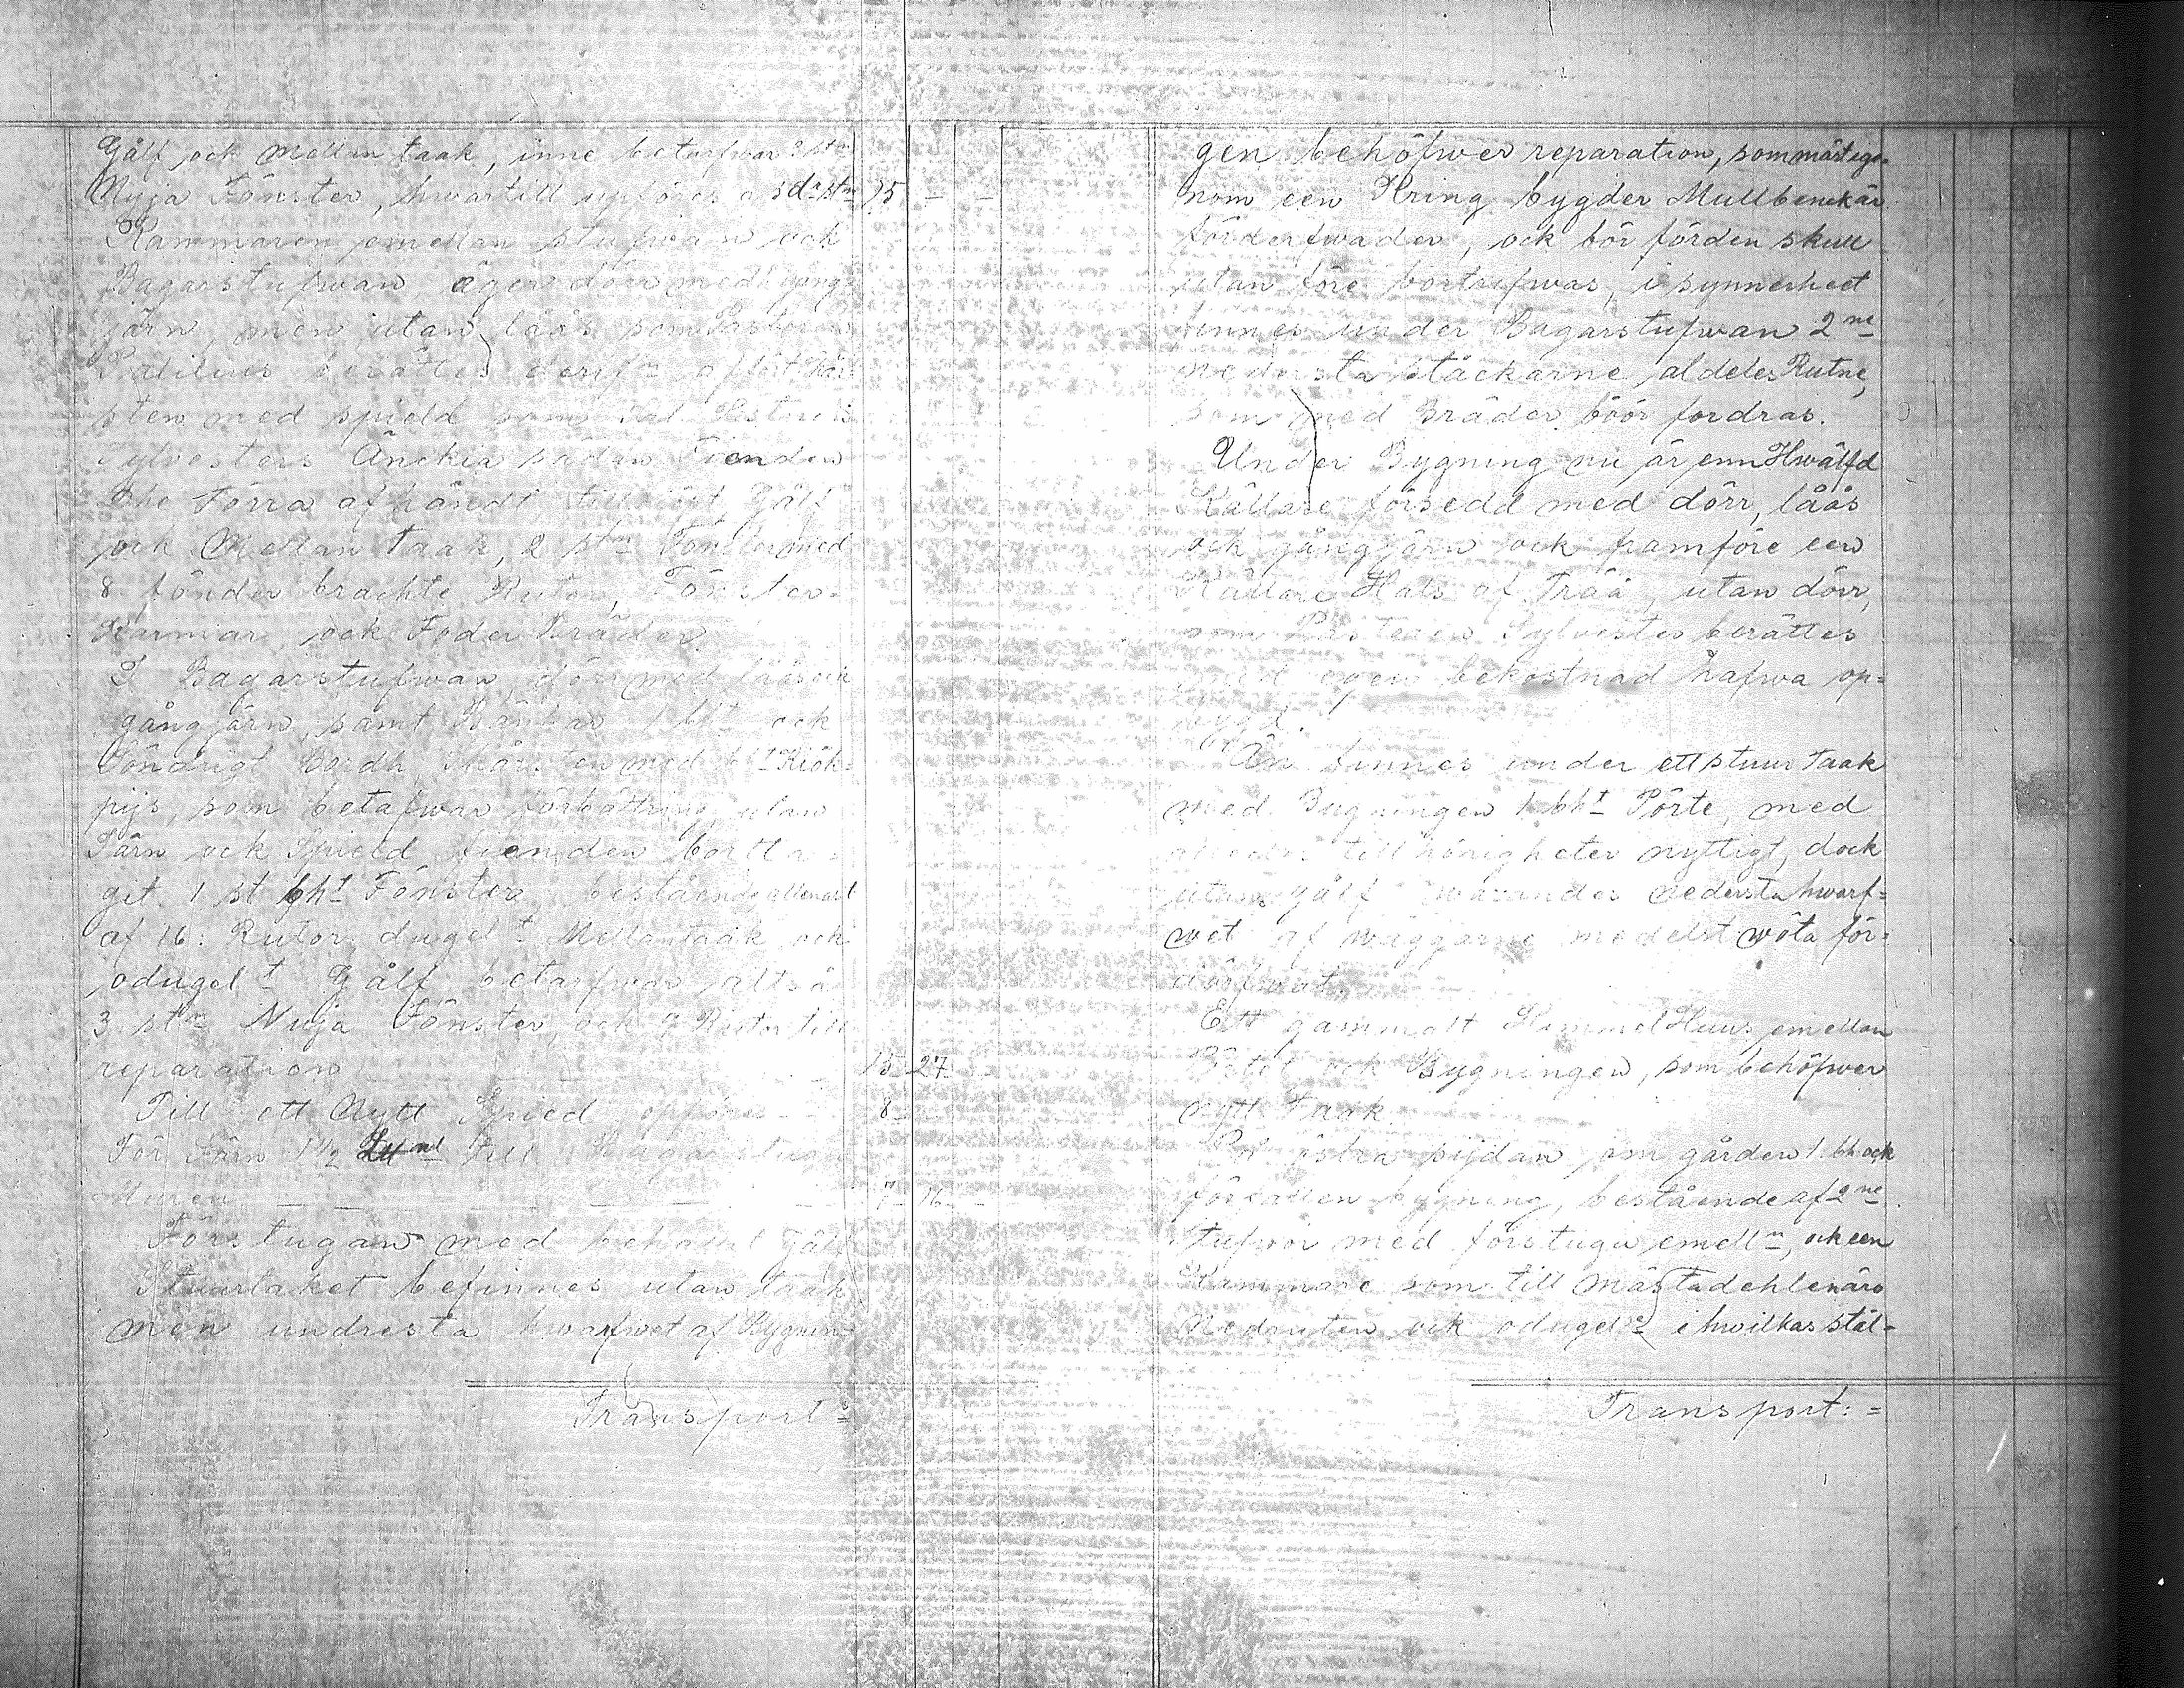 Gålf och mellan taak, inne betarfwar 3 stn
Nyja Fönster, hwartill upföres a 5 dr stn 15 - -
Kammaren emellan stufwan och
Bagarstufwan, äger dörr med gång=
järn, men utan låås som
berättes
sten med spield som
Sylvesters Änckia sedan Fienden
tillrijst, Gålf
och Mellan taak, 2 stn Fönster med
8 sönder brachte Rutor, Fönster
Karmar, och Foder Bräder.
I Bagarstufwan, dörr med låås och
gångjärn, samt Bänkar 1 bht och
Söndrigt Bordh, Skårsten med bht Kiök=
pijs, som betafwar förbättring, utan
Järn och Spield, fienden bortta=
git. 1 st bht Fönster, bestående allenast
af 16: Rutor, dugelt Mellantaak och
odugelt Gålf betarfwas altså
3 stn Nyja Fönster, och 9 Rutor till
reparation 15 27
Till ett Nytt Spield opföres 8
För Järn 1½ till
Muren 7 16
Förstugan med behållit Gålf
Stuurtaket befinnes utan taak
men understa hwarfwet af Bygnin=
Transport=
gen behöfwer reparation, som mäst ige=
nom een Kring bygder Mullbenckär
förderfwader, och bör förden skull
utan före bortrifwas, i synnerheet
finnes under Bagarstufwan 2ne
nedersta ståckarne aldeles Rutne,
som med Bräder böör fordras.
Under Bygning nu är enn Hwälfd
Källare försedd med dörr, låås
och gångjärn och framföre een
Källare Hals af Trää, utan dörr,
som Pastoren Sylvester berättes
med egen bekostnad hafwa op=
bygt.
Än finnes under ett stuur taak
med Bygningen 1 bht Pörte, med
tillhörigheter nyttigt, dock
utan gålf warandes nedersta hwarf=
wet af wäggarne medelst wöta för=
därfwat.
Ett gammalt HimmelHuus emellan
Pörtet och Bygningen, som behöfwer
nytt Taak.
På östra sijdan om gården 1. bh och
förfallen bygning, bestående af 2ne
stufwor med förstuga emelln, och een
Kammare som till mästadehlen äro
Nedruten och odugele i hwilkas stäl=
Transport:=